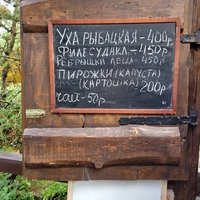 УХА РЫБАЦКАЯ-400р
ФИЛЕ СУДАКА-450р
РЕБРЫШКИ ЛЕЩА-450р
ПИРОЖКИ (КАПУСТА)
-(КАРТОШКА) 200р
ЧАЙ-50р